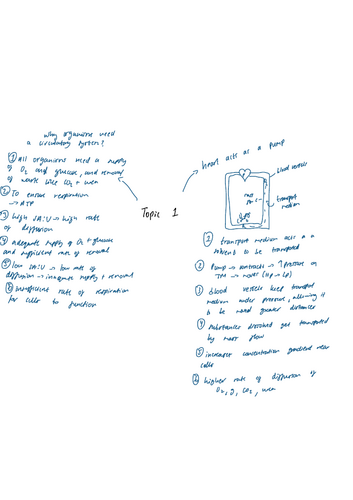 Why organisms need
a circulatory system?
① All organisms need a supply
of O2 and glucose, and removal
of waste like CO2 + urea
② To ensure respiration
→ ATP
③ high SA:V → high rate
of diffusion
④ adequate supply of O2 + glucose
and sufficient rate of removal
⑤ low SA:V → low rate of
diffusion → inadequate supply + removal
⑥ insufficient rate of respiration
for cells to function
Topic 1
heart acts as a pump
blood vessels
transport
medium
① transport medium acts as a
to be transported
② Pump → contracts → ↑ pressure on
TM → moves (HP → LP)
③ Blood vessels keep transport
medium under pressure, allowing it
to be moved greater distances
④ substances dissolved get transported
by mass flow
⑤ increases concentration gradient near
cells
⑥ higher rate of diffusion of
O2, g, CO2, urea